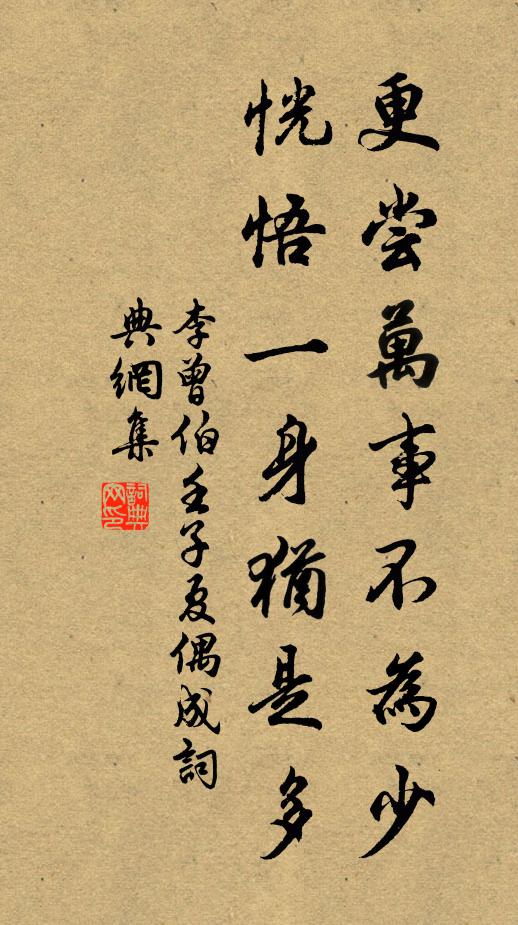 更尝萬事不為少
恍悟一身猶是多
李曾伯壬子夏偶成詞
典網集
詞典網印